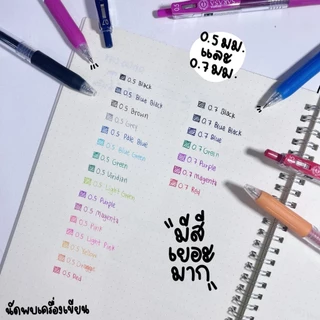 0.5 มม.
และ
0.7 มม.
0.5 Black
0.5 Blue Black
0.5 Brown
0.5 Gray
0.5 Pale Blue
0.5 Blue Green
0.5 Green
0.5 Viridian
0.5 Light Green
0.5 Purple
0.5 Magenta
0.5 Pink
0.5 Light Pink
0.5 Yellow
0.5 Orange
0.5 Red
0.7 Black
0.7 Blue Black
0.7 Blue
0.7 Green
0.7 Purple
0.7 Magenta
0.7 Red
"มีสี
เยอะ
มาก"
นัดพบเครื่องเขียน